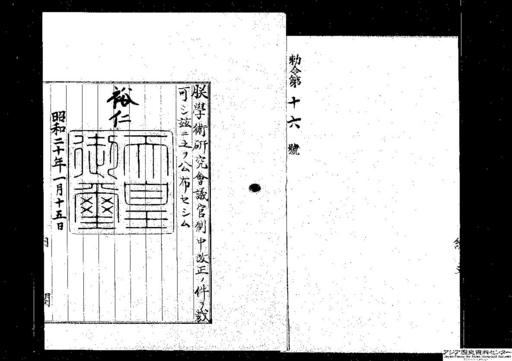 勅令第十六號
朕學術研究會議官制中改正ノ件ヲ裁
可シ茲ニ之ヲ公布セシム
裕仁
天皇
御璽
昭和二十年一月十五日
内閣
アジア歴史資料センター